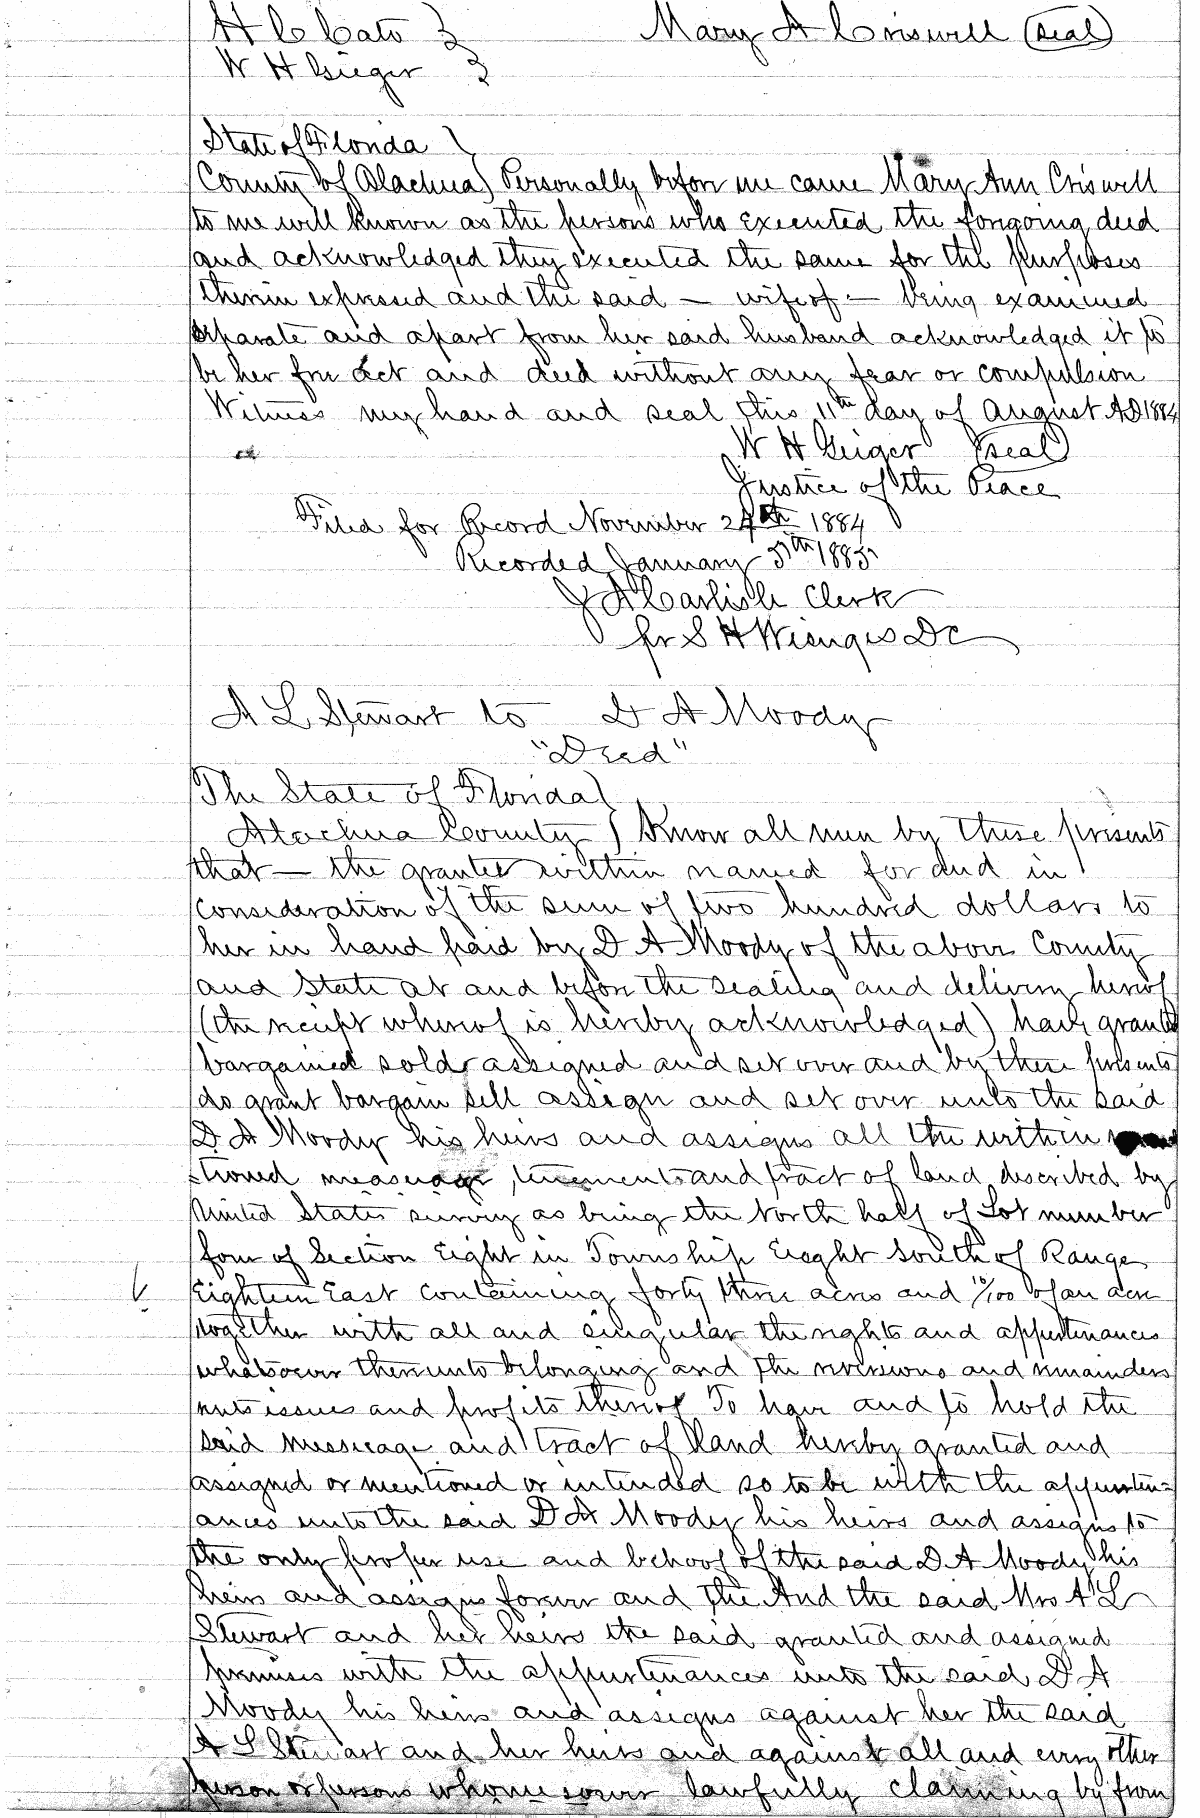 H C Cato } Mary A Criswell (seal)
W H Gieger }
State of Florida )
County of Alachua) Personally before me came Mary Ann Criswell
to me well known as the persons who executed the forgoing deed
and acknowledged they executed the same for the purposes
therein expressed and the said — wife of — being examined
separate and apart from her said husband acknowledged it to
be her free act and deed without any fear or compulsion
Witness my hand and seal this 11th day of August AD 1884
W H Geiger (Seal)
Justice of the Peace
Filed for Record November 24th 1884
Recorded January 5th 1885
J A Carlisle Clerk
pr S H Wienges DC
A L Stewart to D A Moody
"Deed"
The State of Florida)
Alachua County ) Know all men by these presents
that — the grantee within named for and in
consideration of the sum of two hundred dollars to
her in hand paid by D A Moody of the above County
and State at and before the sealing and delivery hereof
(the receipt whereof is hereby acknowledged) have granted
bargained sold assigned and set over and by these presents
do grant bargain sell assign and set over unto the said
D A Moody his heirs and assigns all the within
tioned messuage, tenements and tract of land described by
United States survey as being the North half of Lot number
four of Section Eight in Township Eaght South of Range
Eighteen East containing forty three acres and 10/100 of an acre
together with all and singular the rights and appurtinances
whatsoever thereunto belonging and the reversions and remainders
rents issues and profits thereof To have and to hold the
said messuage and tract of land hereby granted and
assigned or mentioned or intended so to be with the appurten=
ances unto the said D A Moody his heirs and assigns to
the only proper use and behoof of the said D A Moody his
heirs and assigns forever and the And the said Mrs A L
Stewart and her heirs the said granted and assigned
premises with the appurtenances unto the said D A
Moody his heirs and assigns against her the said
A L Stewart and her heirs and against all and every other
person or persons whomesoever lawfully claiming by from